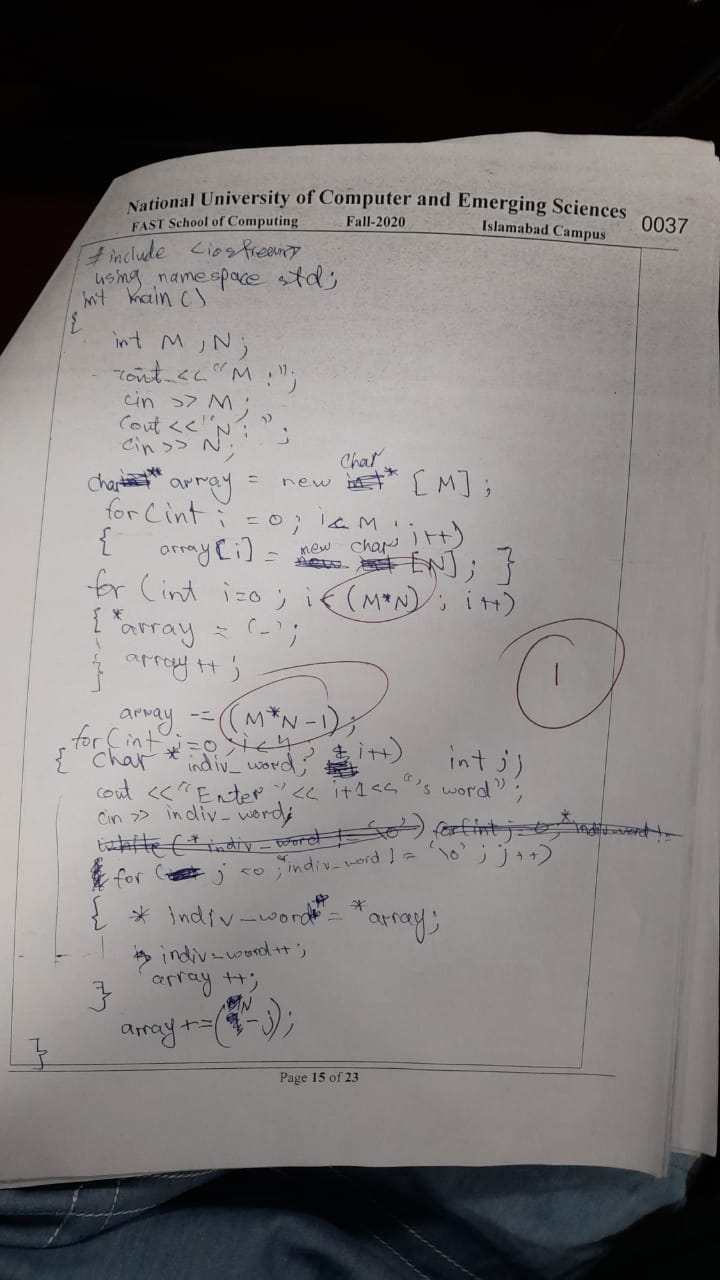 National University of Computer and Emerging Sciences 0037
FAST School of Computing Fall-2020 Islamabad Campus
# include <iostream>
using namespace std;
int main()
{
int M, N;
cout << "M :";
cin >> M;
cout << "N : ";
cin >> N;
char** array = new char* [M];
for (int i = 0; i < M; i++)
{ array[i] = new char [N]; }
for (int i=0; i < (M*N); i++)
{ *array = '-';
array++;
}
1
array -= (M*N-1);
for (int i=0; i< ; i++)
{ char * indiv_word; int j;
cout << "Enter " << i+1 << "'s word";
cin >> indiv_word;
for ( j <0; *indiv_word != '\0'; j++)
{ * indiv_word = *array;
indiv_word++;
array ++;
}
array += (N-j);
}
Page 15 of 23